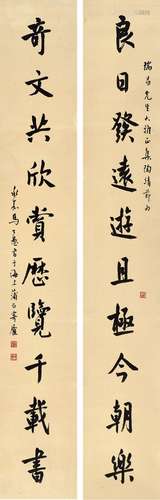 先生大雅正集陶靖節句
良日發遠遊且極今朝樂
奇文共欣賞歷覽千載書
永嘉馬公愚書于海上蒲石寄廬